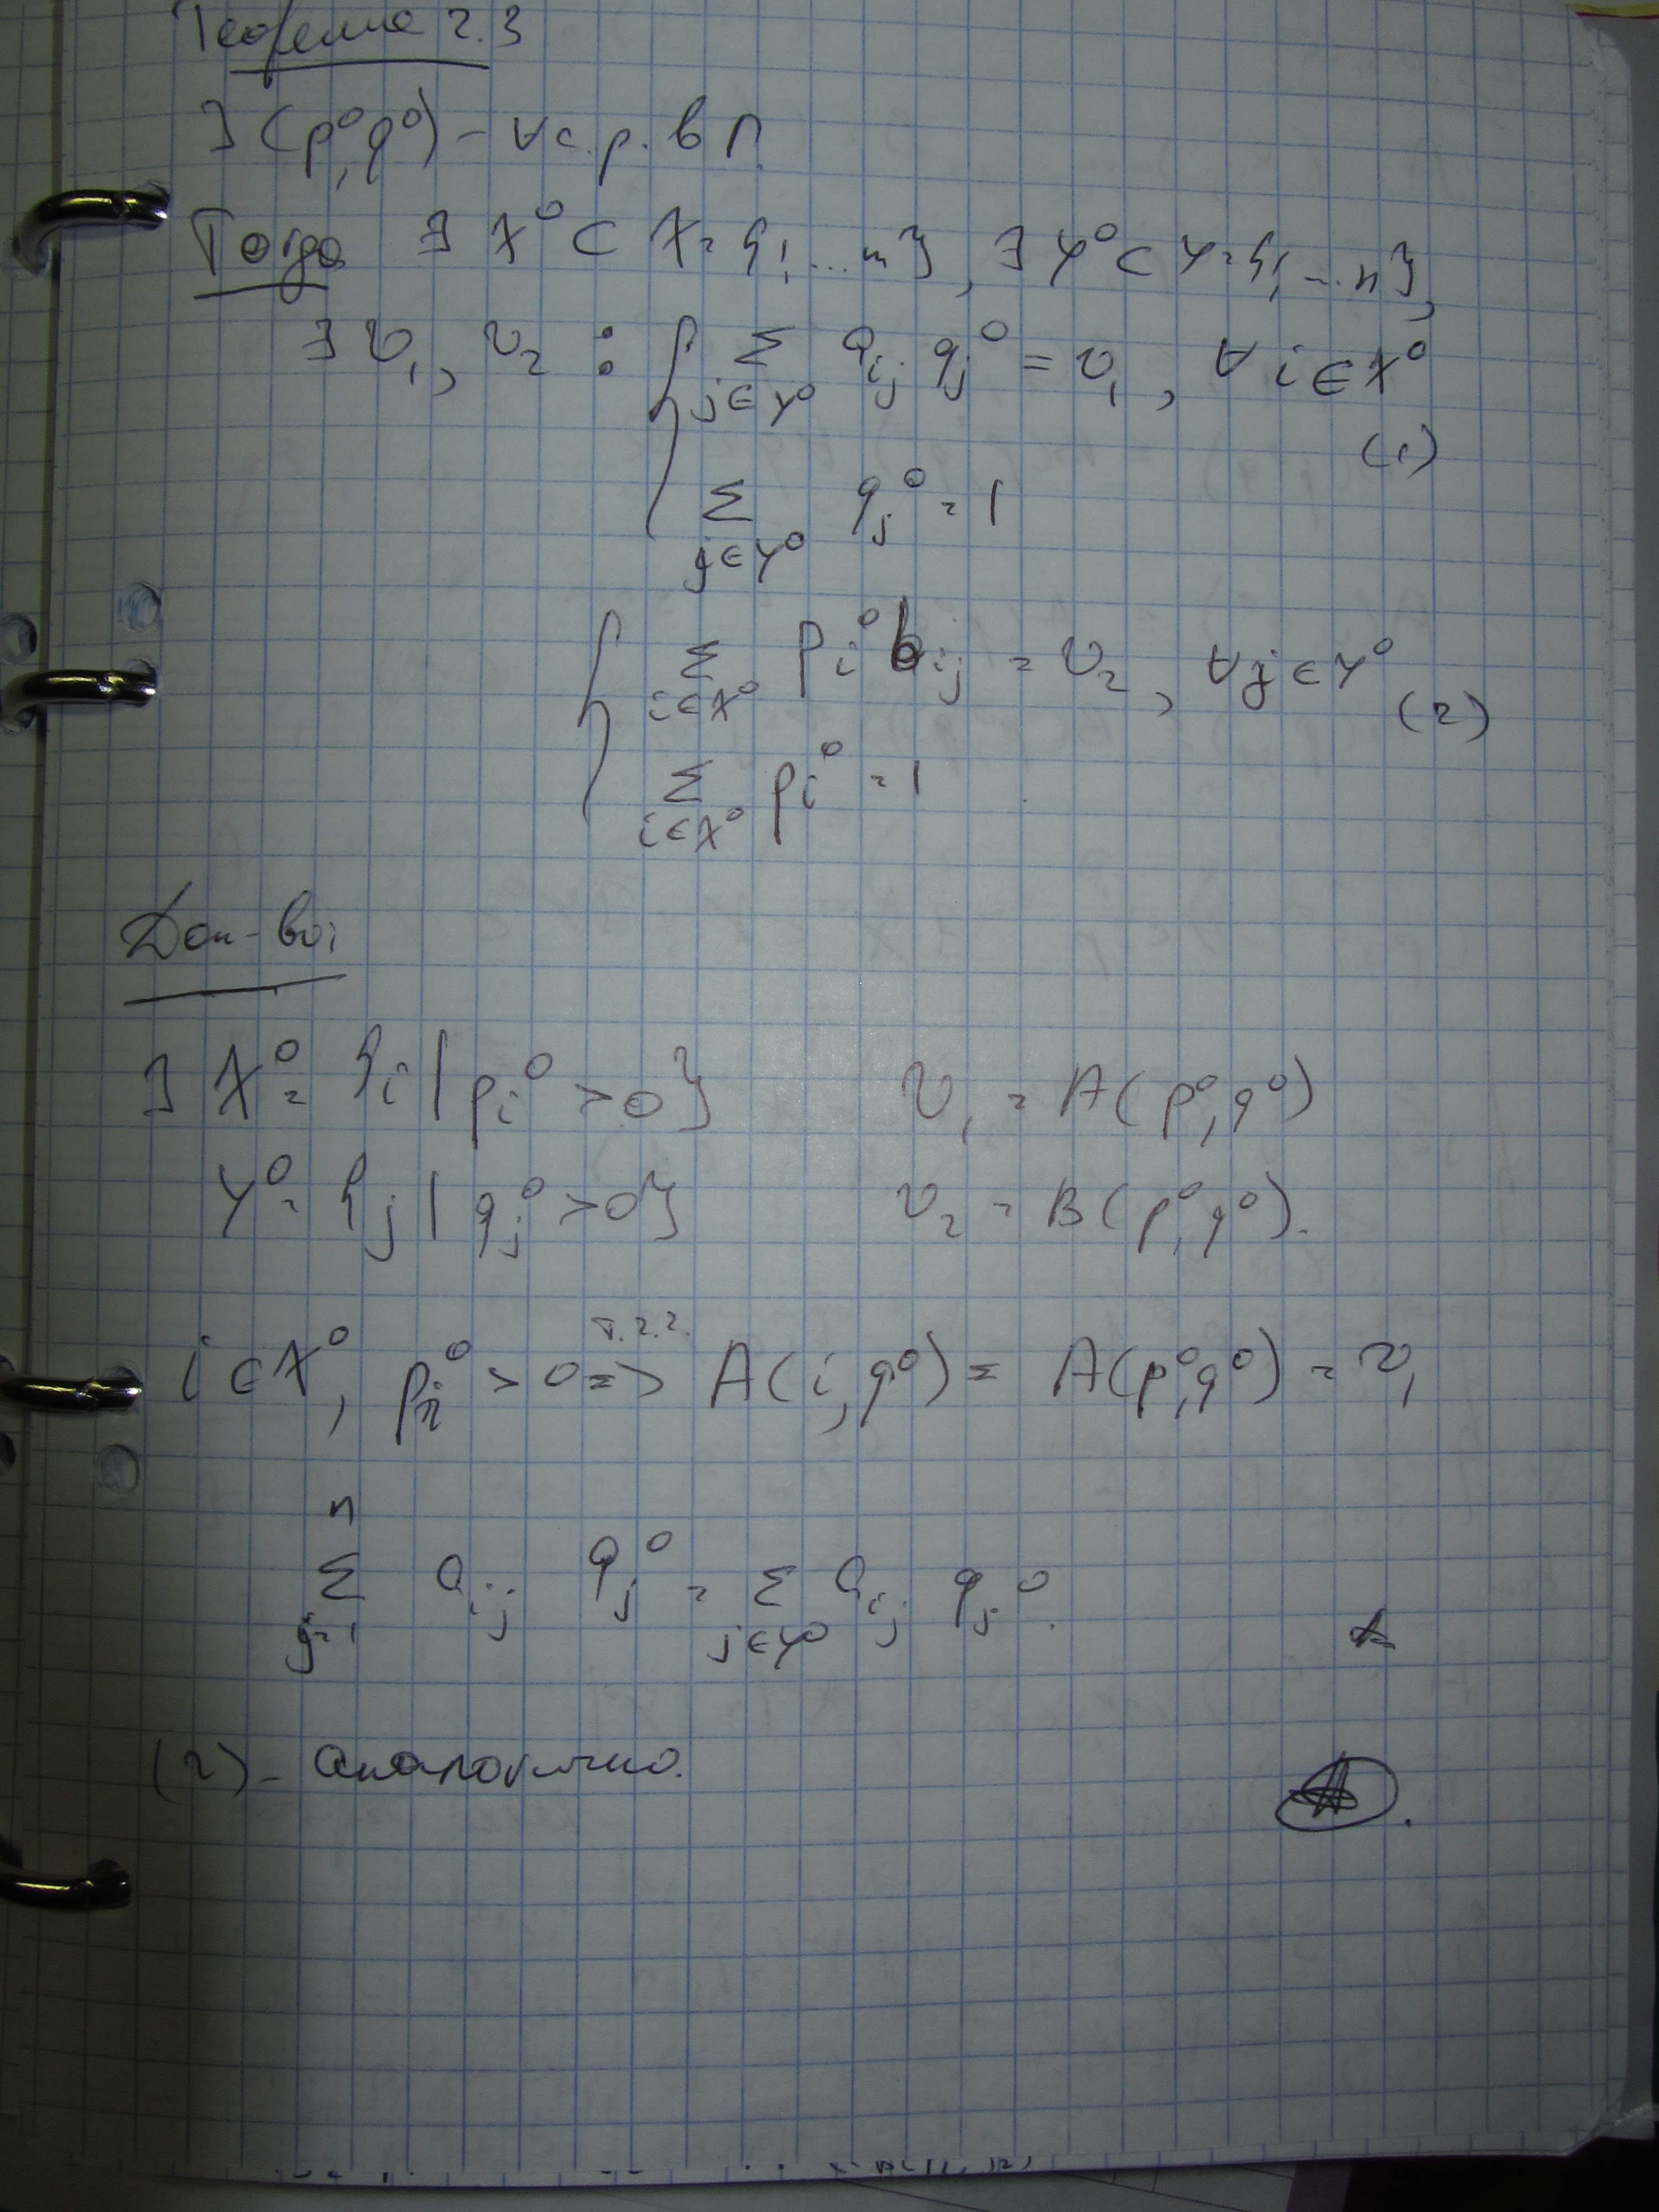 Теорема 2.3
∃ (p⁰, q⁰) – ∀ с.р. в Г.
Тогда ∃ X⁰ ⊂ X = {1, ... m}, ∃ Y⁰ ⊂ Y = {1, ... n},
∃ v₁, v₂ : { Σ_{j∈Y⁰} a_{ij} q_j⁰ = v₁, ∀ i ∈ X⁰
(1)
Σ_{j∈Y⁰} q_j⁰ = 1
{ Σ_{i∈X⁰} p_i⁰ b_{ij} = v₂, ∀ j ∈ Y⁰ (2)
Σ_{i∈X⁰} p_i⁰ = 1
Док-во:
∃ X⁰ = {i | p_i⁰ > 0} v₁ = A(p⁰, q⁰)
Y⁰ = {j | q_j⁰ > 0} v₂ = B(p⁰, q⁰).
i ∈ X⁰, p_i⁰ > 0 ⇒ (т.2.2.) A(i, q⁰) = A(p⁰, q⁰) = v₁
Σ_{j=1}^{n} a_{ij} q_j⁰ = Σ_{j∈Y⁰} a_{ij} q_j⁰.
(2) – аналогично.